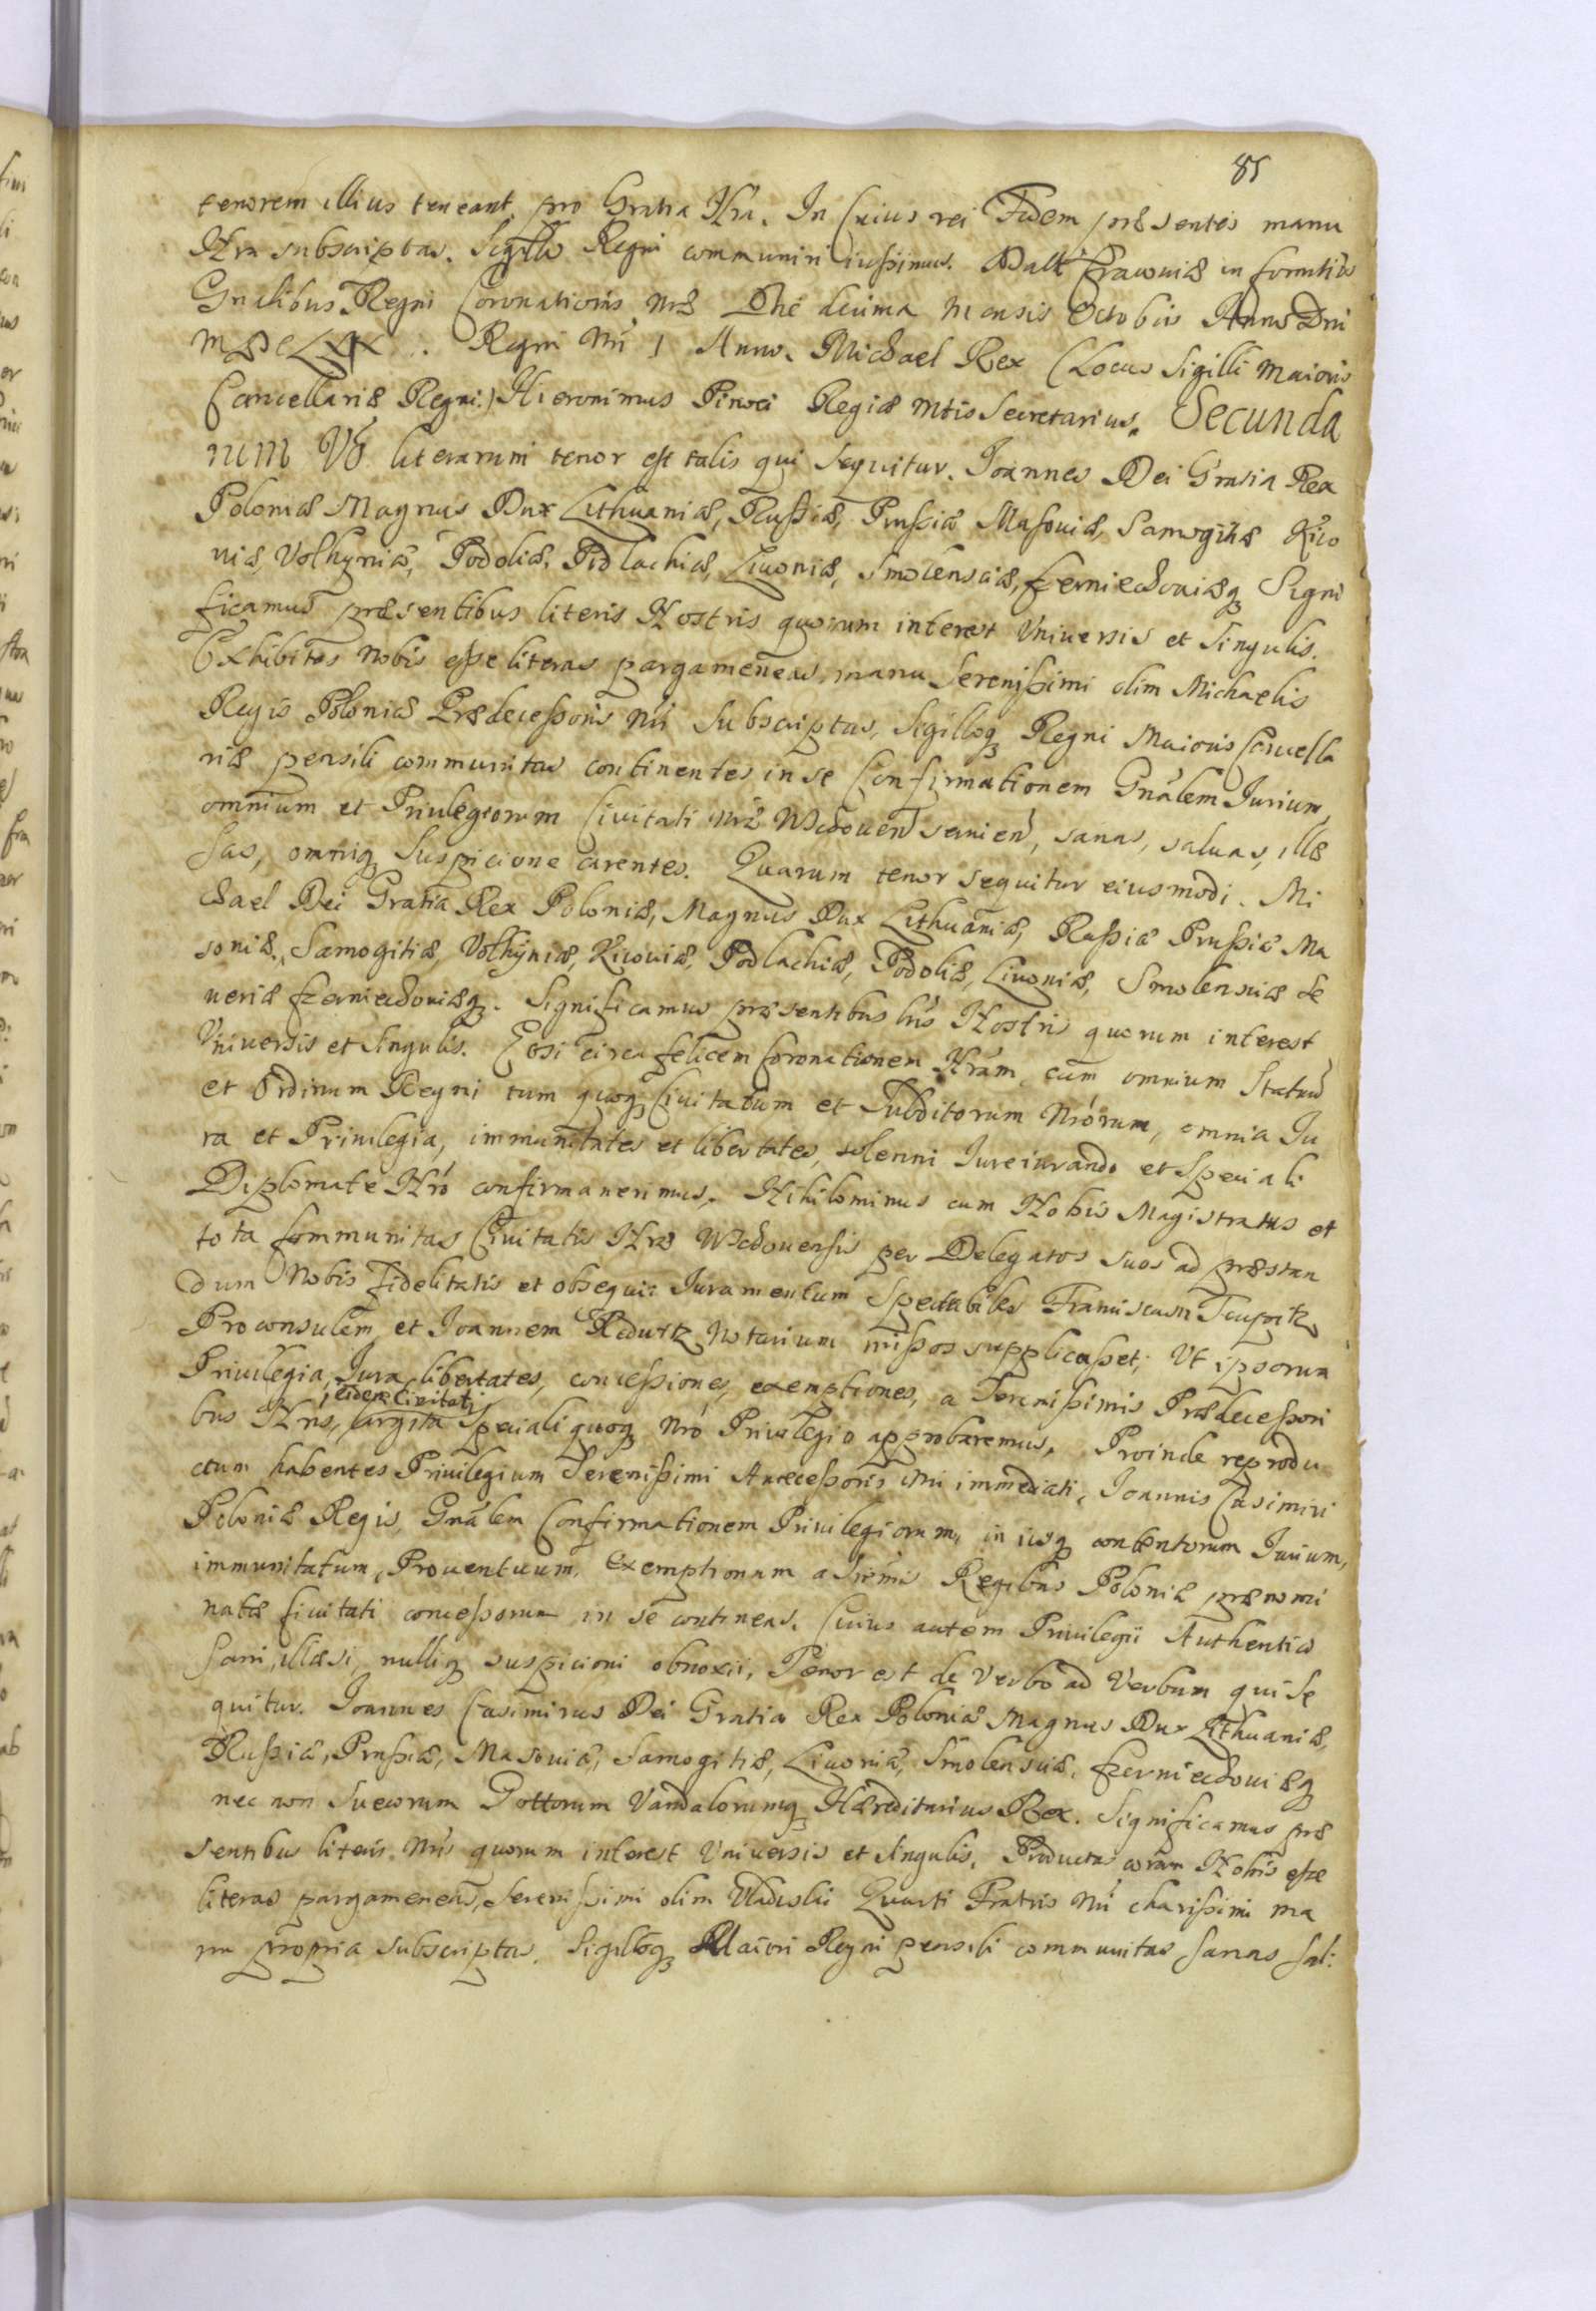 85
tenorem illius teneant, pro Gratia Nra. In Cuius rei Fidem præsentes manu
Nra subscriptas. Sigillo Regni communiri iussimus. Datt Cracouiæ in Comitiis
Gnalibus Regni Coronationis Nræ Die decima Mensis Octobris Anno Dni
MDCLXIX. Regni Nri I Anno. Michael Rex (Locus Sigilli Maioris
Cancellariæ Regni.) Hieronimus Pinoci Regiæ Mtis Secretarius. Secunda
rum Vo literarum tenor est talis qui sequitur. Joannes Dei Gratia Rex
Poloniæ Magnus Dux Lithuaniæ, Russiæ, Prussiæ Masouiæ, Samogitiæ Kiio
uiæ, Volhyniæ, Podoliæ, Podlachiæ, Liuoniæ, Smolensciæ, Czerniechouiæq Signi
ficamus præsentibus literis Nostris quorum interest Vniuersis et Singulis.
Exhibitas Nobis esse literas pargameneas, manu Serenissimi olim Michaelis
Regis Poloniæ Prædecessoris Nri Subscriptas, Sigilloq Regni Maioris Cancella
riæ pensili communitas continentes in se Confirmationem Gnalem Jurium
omnium et Priuilegiorum Ciuitati Nræ Wschouen seruien, sanas, saluas, illæ
sas, omniq Suspicione carentes. Quarum tenor sequitur eiusmodi. Mi
chael Dei Gratia Rex Poloniæ, Magnus Dux Lithuaniæ, Russiæ Prussiæ Ma
soniæ, Samogitiæ, Volhyniæ, Kiiouiæ, Podlachiæ, Podoliæ, Liuoniæ, Smolensciæ Se
ueriæ Czerniechouiæq. Significamus præsentibus Lris Nostris quorum interest
Vniuersis et singulis. Etsi circa felicem Coronationem Nram, cum omnium Statuu
et Ordinum Regni tum quoq Ciuitatum et Subditorum Nrorum, omnia Ju
ra et Priuilegia, immunitates et libertates, solenni Jureiurando et Speciali
Diplomate Nro confirmauerimus. Nihilominus cum Nobis Magistratus et
tota Communitas Ciuitatis Nræ Wschouensis per Delegatos suos ad præstan
dum Nobis Fidelitatis et obsequii Juramentum Spectabiles Franciscum
Proconsulem et Joannem Notarium missos supplicasset, Ut ipsorum
Priuilegia, Jura libertates, concessiones, exemptiones, a Serenissimis Prædecessori
eidem Ciuitati
bus Nris, largita Speciali quoq Nro Priuilegio approbaremus. Proinde reprodu
ctum habentes Priuilegium Serenissimi Antecessoris Nri immediati, Joannis Casimiri
Poloniæ Regis, Gnalem Confirmationem Priuilegiorum, in iisq contentorum Jurium,
immunitatum, Prouentuum, Exemptionum a Sremis Regibus Poloniæ prænomi
natæ Ciuitati concessorum in se continens. Cuius autem Priuilegii Authentici
Sani, illæsi, nulliq suspicioni obnoxii, Tenor est de Verbo ad Verbum qui se
quitur. Joannes Casimirus Dei Gratia Rex Poloniæ Magnus Dux Lithuaniæ,
Russiæ, Prussiæ, Masouiæ, Samogitiæ, Liuoniæ, Smolensciæ, Czerniechouiæq
nec non Suecorum Gottorum Vandalorumq Hæreditarius Rex. Significamus præ
sentibus literis Nris quorum interest Vniuersis et singulis. Productas coram Nobis esse
literas pargameneas, Serenissimi olim Vladislai Quarti Fratris Nri charissimi ma
nu propria subscriptas, Sigilloq Maiori Regni pensili communitas Sanas Sal: